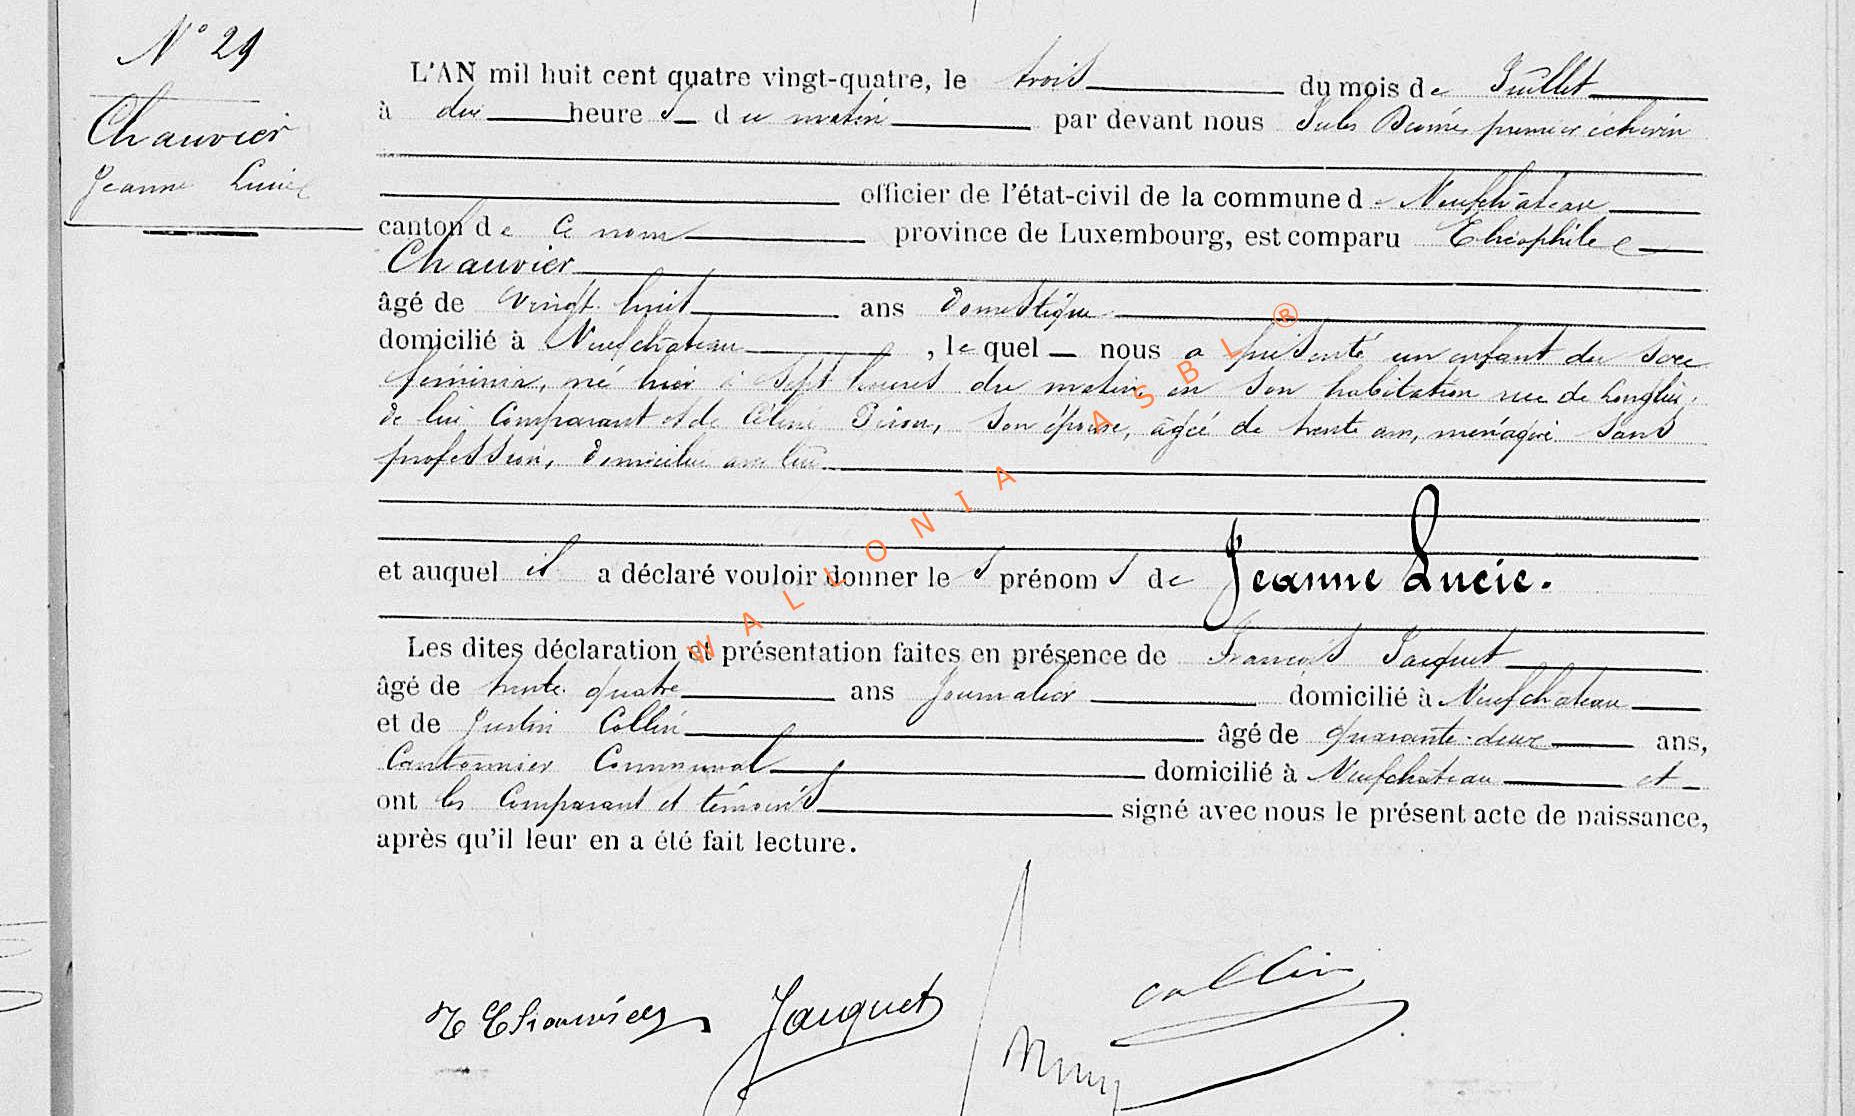 N° 29
Chauvier
Jeanne Lucie
L'AN mil huit cent quatre vingt-quatre, le trois du mois de Juillet
à dix heures du matin par devant nous Jules premier échevin
officier de l'état-civil de la commune de Neufchâteau
canton de ce nom province de Luxembourg, est comparu Théophile
Chauvier
âgé de vingt huit ans domestique
domicilié à Neufchateau, le quel nous a présenté un enfant du sexe
féminin, né hier à sept heures du matin en son habitation rue de Longlier,
de lui comparant et de Céline Pirson, son épouse, âgée de trente ans, ménagère sans
profession, domiciliée avec lui
et auquel il a déclaré vouloir donner les prénoms de Jeanne Lucie.
Les dites déclaration et présentation faites en présence de François Jacquet
âgé de trente quatre ans journalier domicilié à Neufchateau
et de Justin Collin âgé de quarante-deux ans,
Cantonnier Communal domicilié à Neufchateau et
ont les Comparant et témoins signé avec nous le présent acte de naissance,
après qu'il leur en a été fait lecture.
WALLONIA ASBL ®
T Chauvier Jacquet Collin